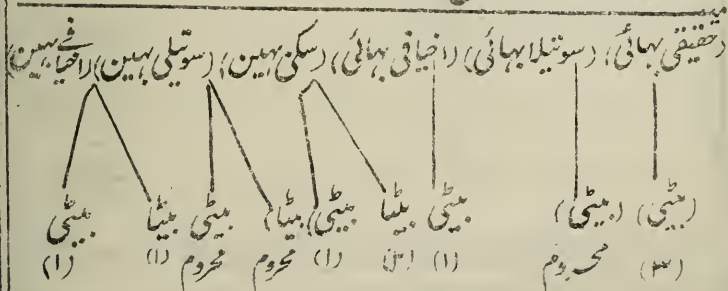 (حقیقی بہائی) (سوتیلا بہائی) (اخیافی بہائی) (سگی بہین) (سوتیلی بہین) (اخیافے بہین)
(بیٹی) (بیٹی) بیٹی بیٹا (بیٹی) (بیٹا) بیٹی بیٹا بیٹی
(۳) محروم (۱) (۱) محروم محروم (۱) (۱)